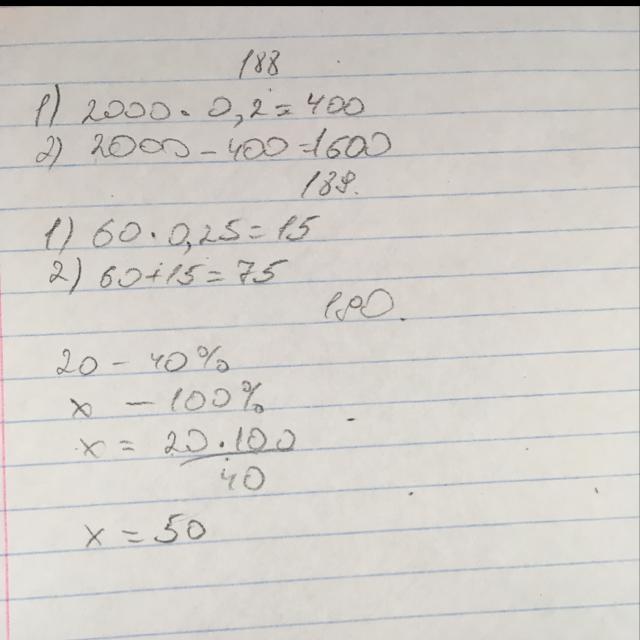 188
1) 2000 · 0,2 = 400
2) 2000 – 400 = 1600
189.
1) 60 · 0,25 = 15
2) 60 + 15 = 75
190.
20 – 40%
x – 100%
x = 20 · 100
40
x = 50